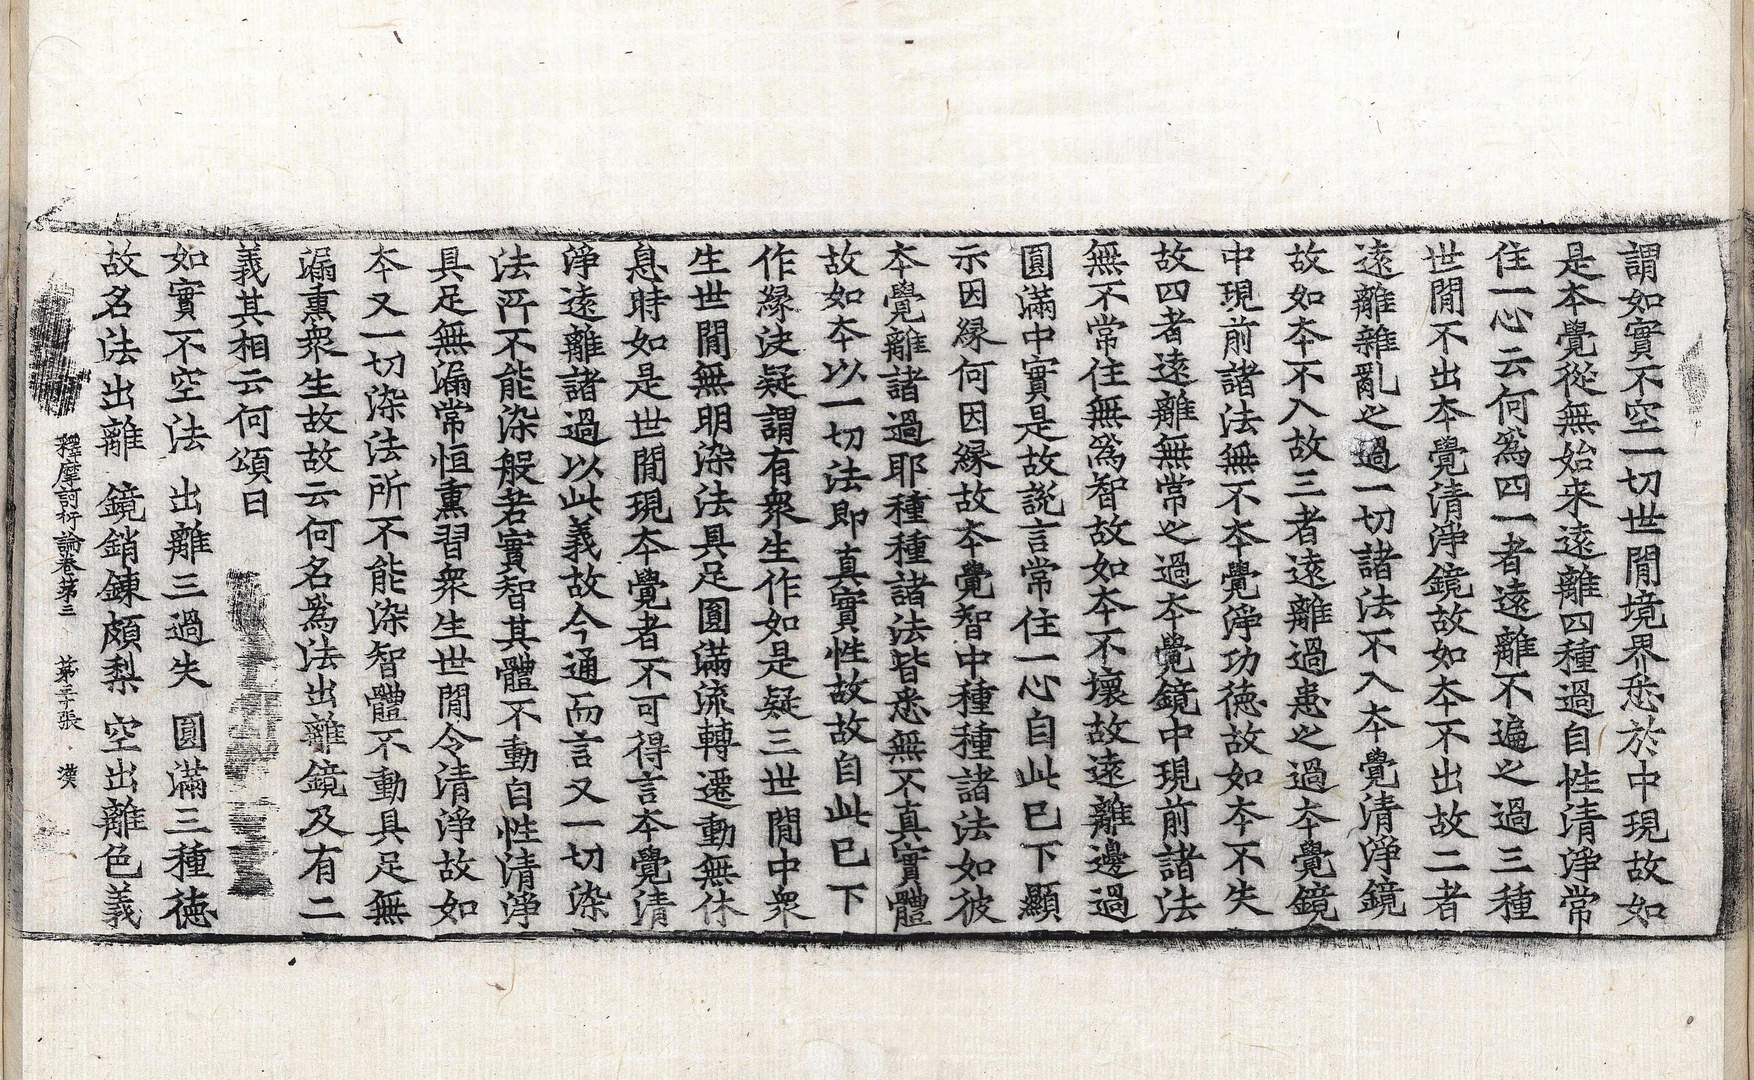 謂如實不空一切世閒境界悉於中現故如
是本覺從無始來遠離四種過自性清淨常
住一心云何爲四一者遠離不遍之過三種
世閒不出本覺清淨鏡故如本不出故二者
遠離雜亂之過一切諸法不入本覺清淨鏡
故如本不入故三者遠離過患之過本覺鏡
中現前諸法無不本覺淨功德故如本不失
故四者遠離無常之過本覺鏡中現前諸法
無不常住無爲智故如本不壞故遠離邊過
圓滿中實是故説言常住一心自此已下顯
示因緣何因緣故本覺智中種種諸法如彼
本覺離諸過耶種種諸法皆悉無不真實體
故如本以一切法即真實性故故自此已下
作緣決疑謂有衆生作如是疑三世閒中衆
生世閒無明染法具足圓滿流轉遷動無休
息時如是世閒現本覺者不可得言本覺清
淨遠離諸過以此義故今通而言又一切染
法所不能染般若實智其體不動自性清淨
具足無漏常恒熏習衆生世閒令清淨故如
本又一切染法所不能染智體不動具足無
漏熏衆生故故云何名爲法出離鏡及有二
義其相云何頌曰
如實不空法 出離三過失 圓滿三種德
故名法出離 鏡銷鍊頗梨 空出離色義
釋摩訶衍論卷第三 第 張 漢